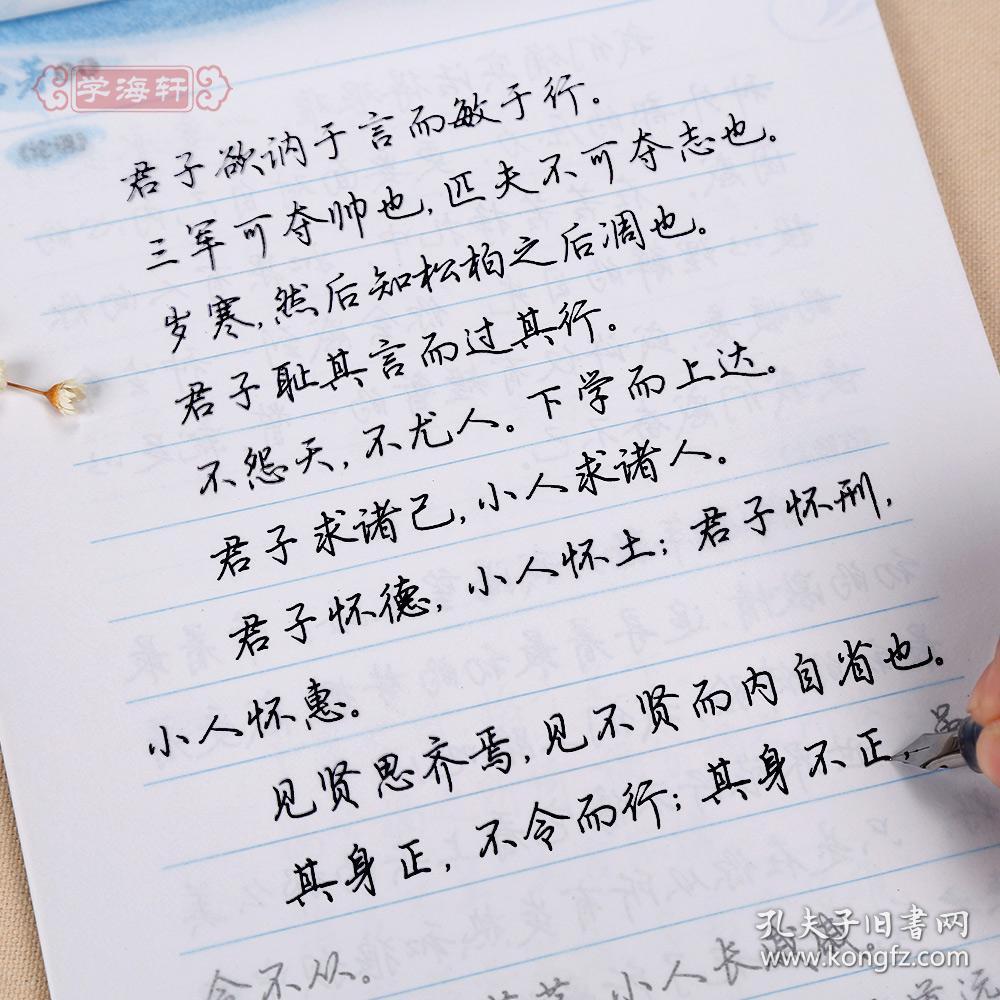 学海轩
君子欲讷于言而敏于行。
三军可夺帅也,匹夫不可夺志也。
岁寒,然后知松柏之后凋也。
君子耻其言而过其行。
不怨天,不尤人。下学而上达。
君子求诸己,小人求诸人。
君子怀德,小人怀土;君子怀刑,
小人怀惠。
见贤思齐焉,见不贤而内自省也。
其身正,不令而行;其身不正,
令不从。
小人长戚戚。
孔夫子旧书网
www.kongfz.com